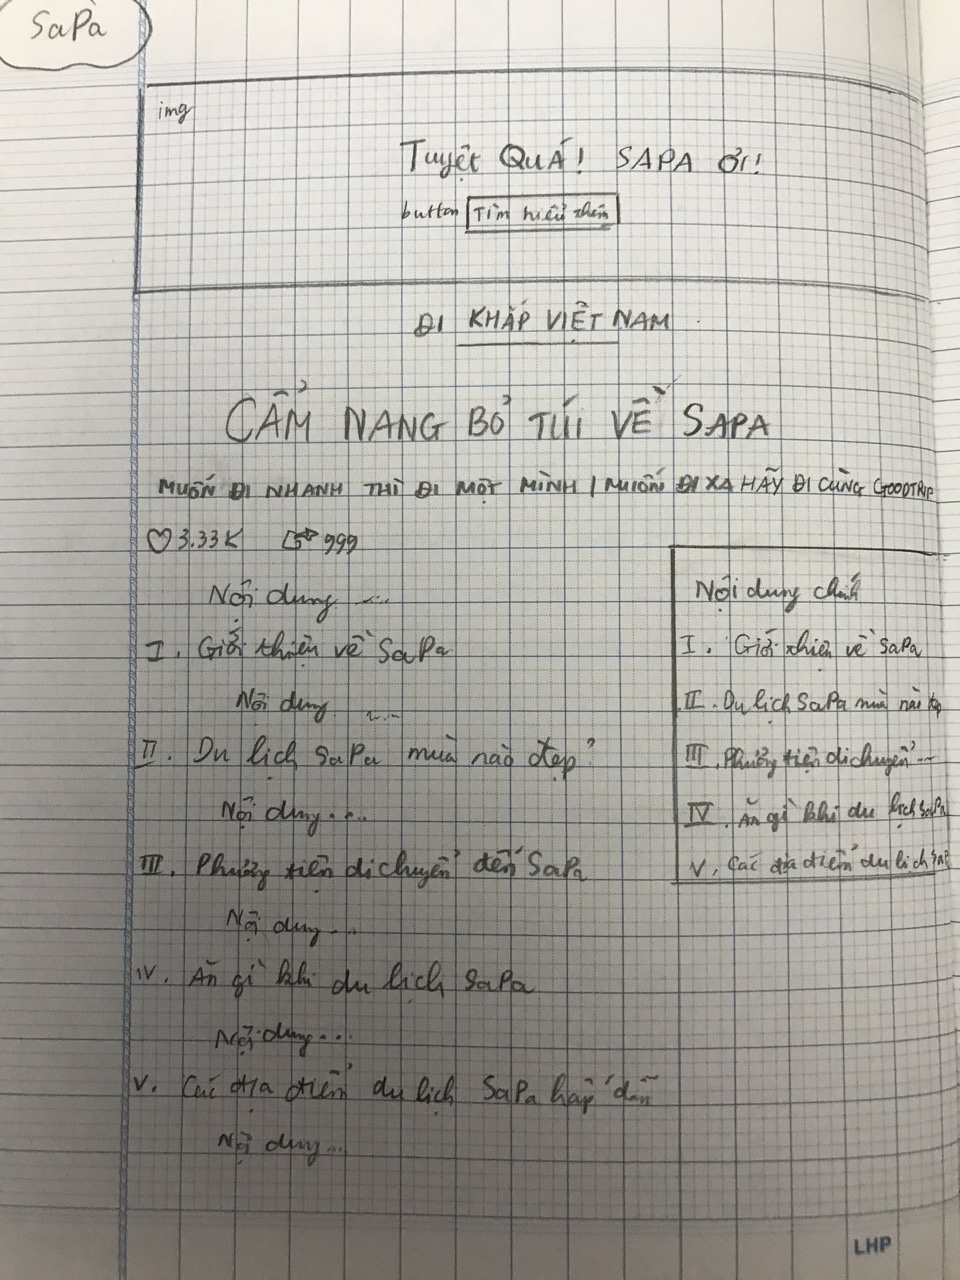 SaPa
img
Tuyệt QUÁ! SAPA ƠI!
button Tìm hiểu thêm
ĐI KHẮP VIỆT NAM
CẨM NANG BỎ TÚI VỀ SAPA
MUỐN ĐI NHANH THÌ ĐI MỘT MÌNH / MUỐN ĐI XA HÃY ĐI CÙNG GOODTRIP
3.33K 999
Nội dung ...
I. Giới thiệu về SaPa
Nội dung ...
II. Du lịch SaPa mùa nào đẹp?
Nội dung ...
III. Phương tiện di chuyển đến SaPa
Nội dung ...
IV. Ăn gì khi du lịch SaPa
Nội dung ...
V. Các địa điểm du lịch SaPa hấp dẫn
Nội dung ...
Nội dung chính
I. Giới thiệu về SaPa
II. Du lịch SaPa mùa nào
III. Phương tiện di chuyển ...
IV. Ăn gì khi du lịch SaPa
V. Các địa điểm du lịch
LHP